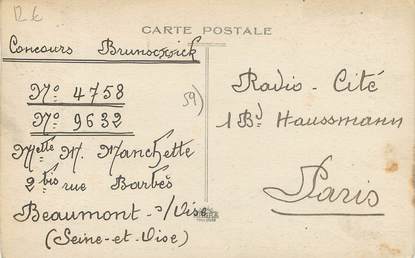 CARTE POSTALE
Concours Brunschwick
No 4758
No 9632
59)
Melle M. Manchette
2 bis rue Barbès
Beaumont-s/Oise
(Seine-et-Oise)
Radio-Cité
1 Bd Haussmann
Paris